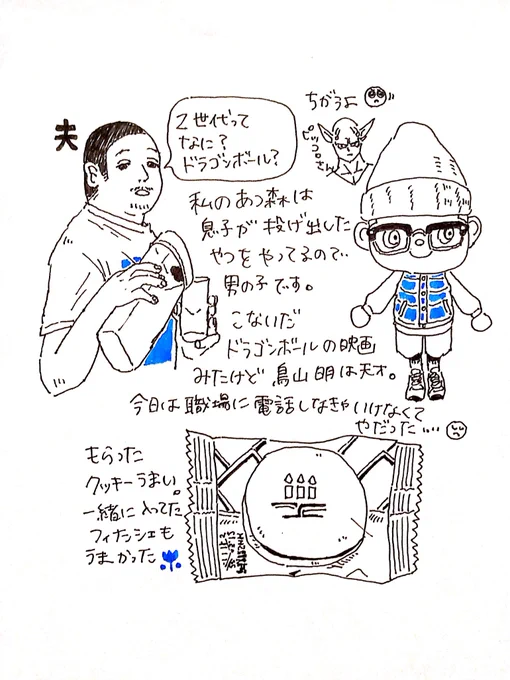 夫
2世代って
なに？
ドラゴンボール？
ちがうよ
ピッコロさん
私のあつ森は
息子が投げ出した
やつをやってるので
男の子です。
こないだ
ドラゴンボールの映画
みたけど鳥山明は天才。
今日は職場に電話しなきゃいけなくて
やだった…
もらった
クッキーうまい。
一緒に入ってた
フィナンシェも
うまかった